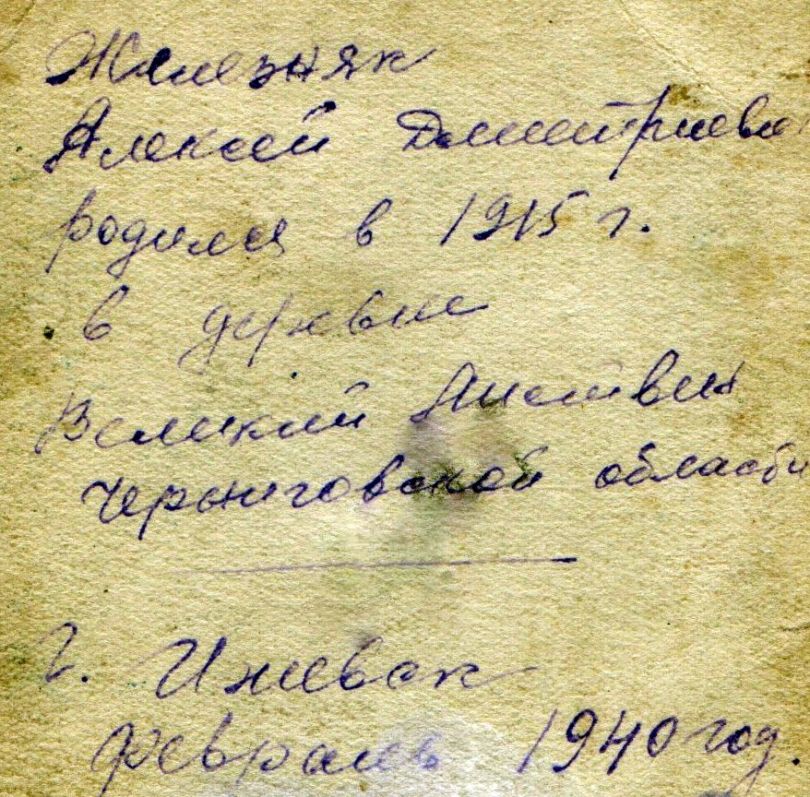 Железняк
Алексей Дмитриеви
родился в 1915 г.
в деревне
Великий Листвен
Черниговской области
г. Ижевск
февраль 1940 год.